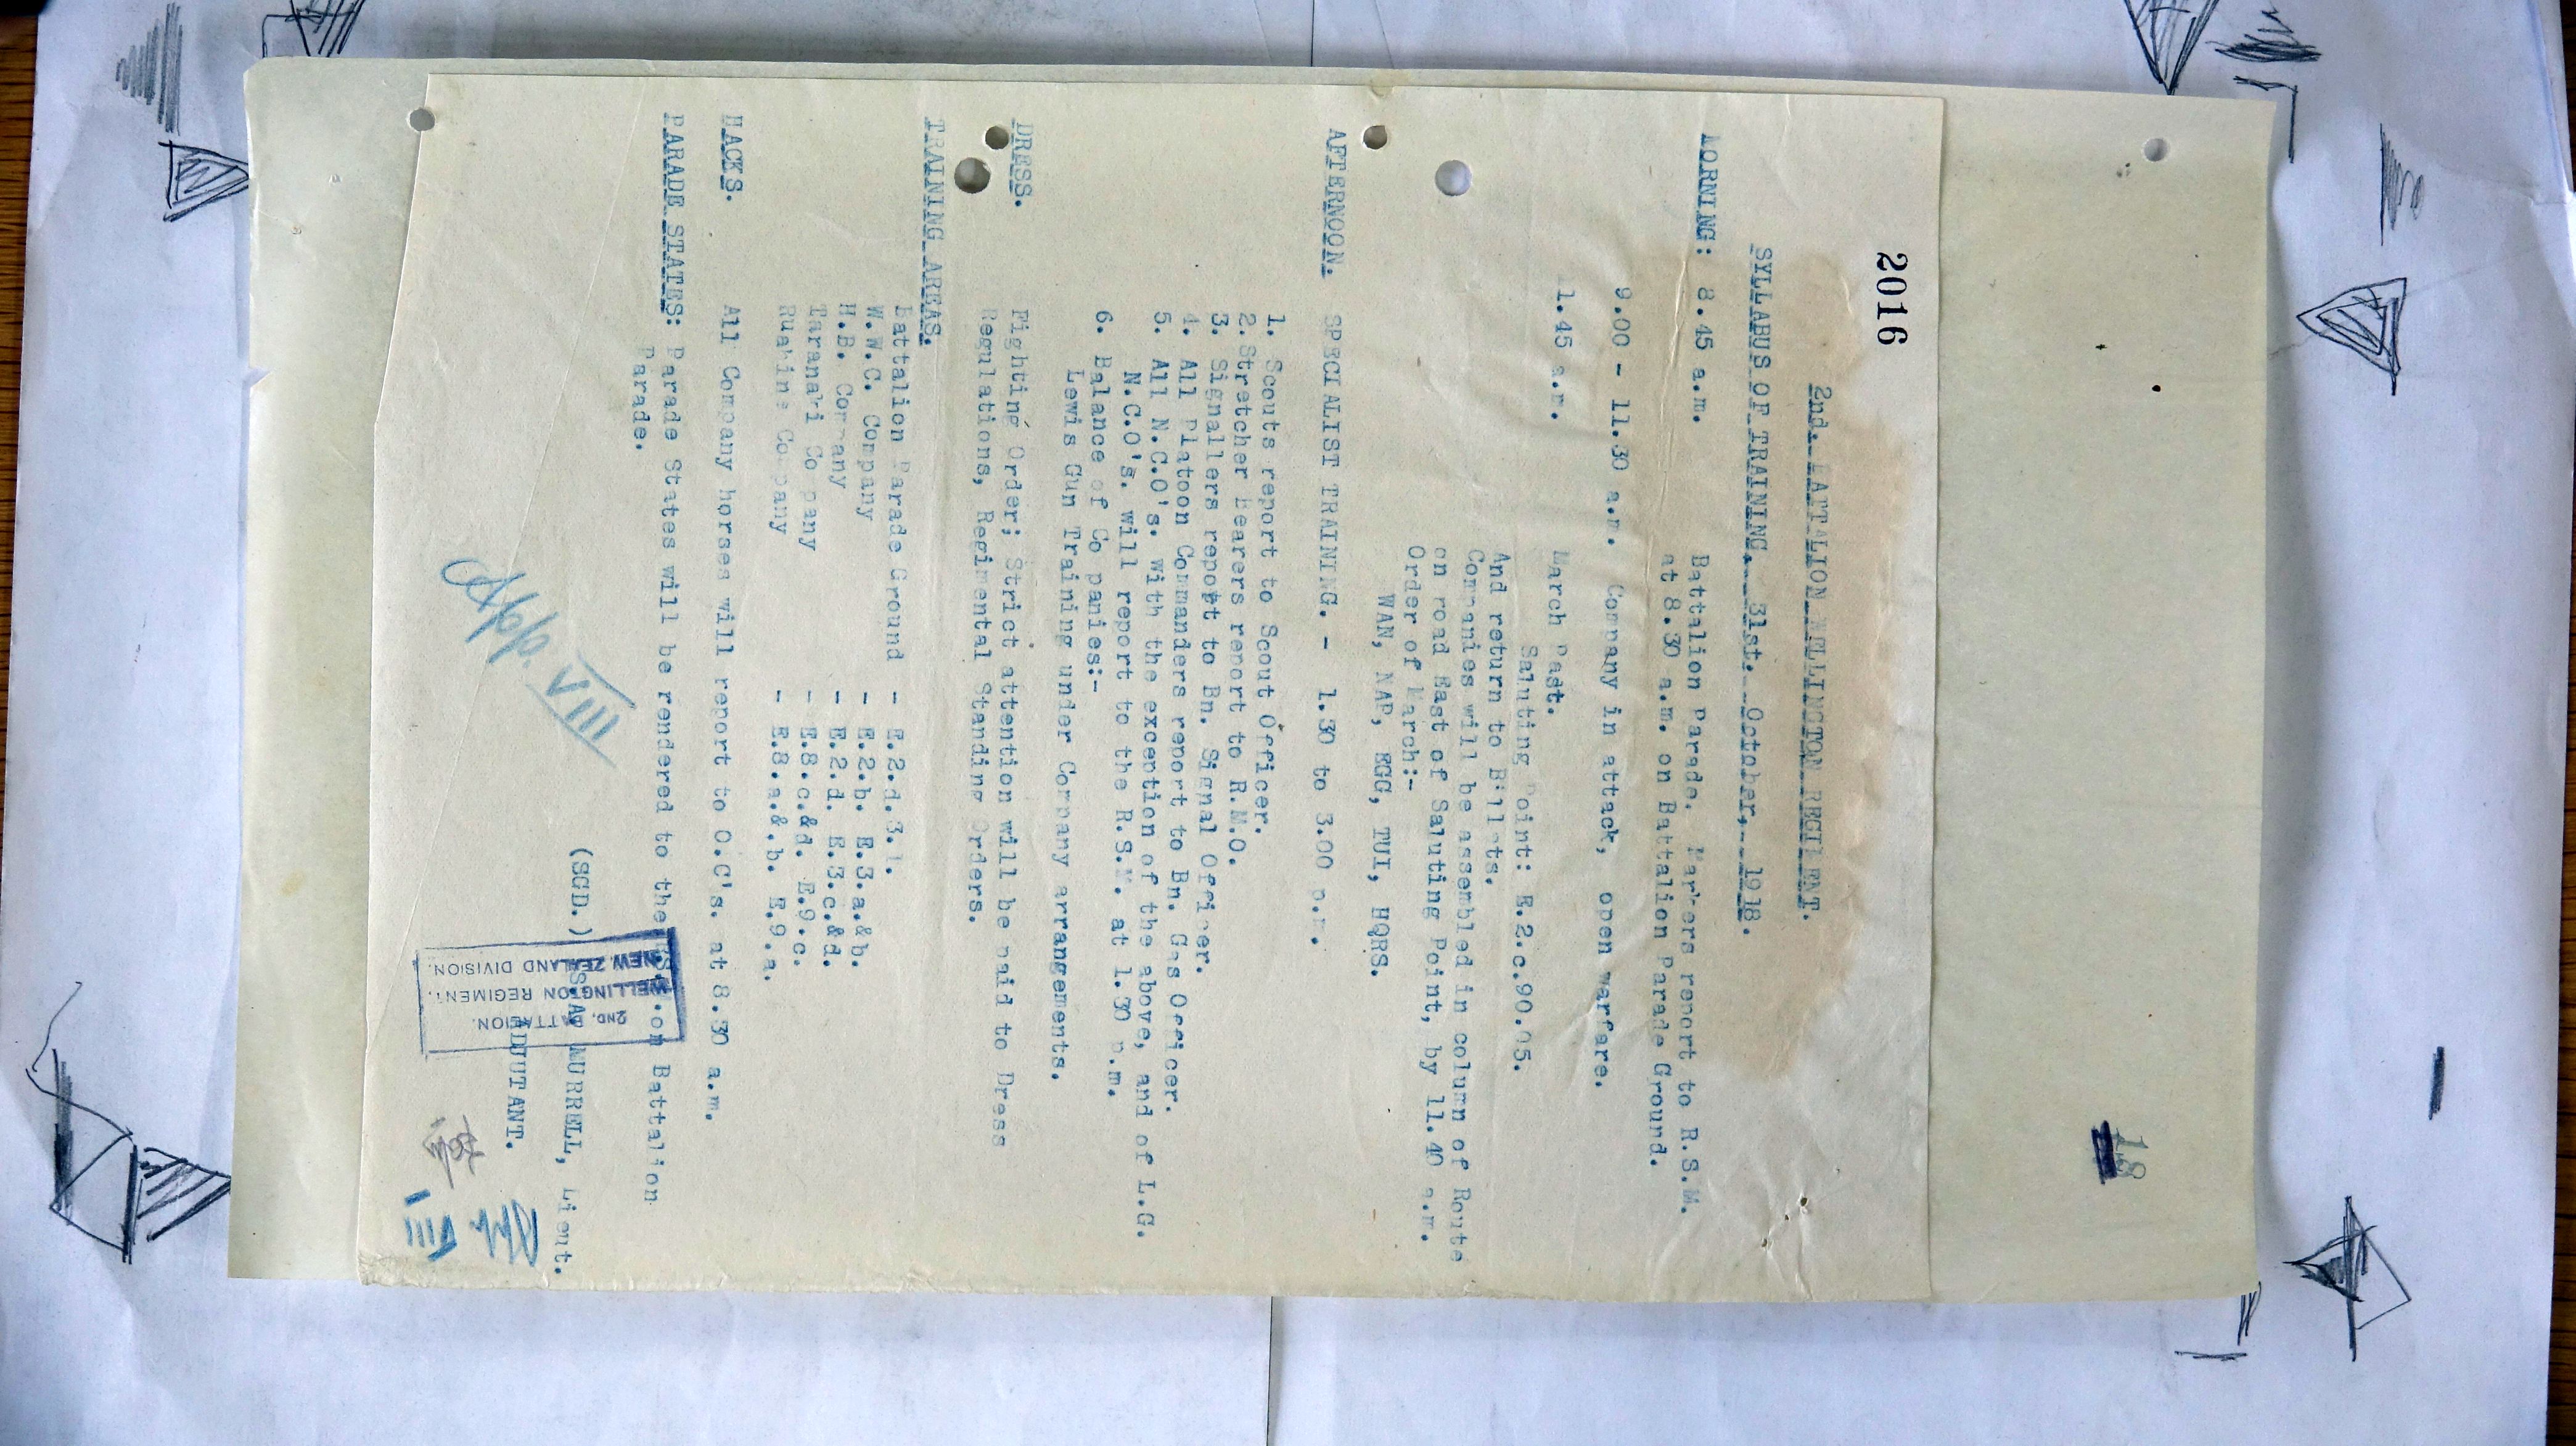 18
2016
2nd. BATTALION WELLINGTON REGIMENT.
SYLLABUS OF TRAINING. 31st. October, 1918.
MORNING: 8.45 a.m. Battalion Parade. Markers report to R.S.M.
at 8.30 a.m. on Battalion Parade Ground.
9.00 - 11.30 a.m. Company in attack, open warfare.
11.45 a.m. March Past.
Saluting Point: E.2.c.90.05.
And return to Billets.
Companies will be assembled in column of Route
on road East of Saluting Point, by 11.40 a.m.
Order of March:-
WAN, NAP, EGG, TUI, HQRS.
AFTERNOON. SPECIALIST TRAINING. - 1.30 to 3.00 p.m.
1. Scouts report to Scout Officer.
2. Stretcher Bearers report to R.M.O.
3. Signallers report to Bn. Signal Officer.
4. All Platoon Commanders report to Bn. Gas Officer.
5. All N.C.O's. with the exception of the above, and of L.G.
N.C.O's. will report to the R.S.M. at 1.30 p.m.
6. Balance of Companies:-
Lewis Gun Training under Company arrangements.
DRESS. Fighting Order; Strict attention will be paid to Dress
Regulations, Regimental Standing Orders.
TRAINING AREAS.
Battalion Parade Ground - E.2.d.3.1.
W.W.C. Company - E.2.b. E.3.a.&b.
H.B. Company - E.2.d. E.3.c.&d.
Taranaki Company - E.8.c.&d. E.9.c.
Ruahine Company - E.8.a.&.b. E.9.a.
HACKS. All Company horses will report to O.C's. at 8.30 a.m.
PARADE STATES: Parade States will be rendered to the R.S.M. on Battalion
Parade.
(SGD.) S.A. MURRELL, Lieut.
ADJUTANT.
2ND. BATTALION.
WELLINGTON REGIMENT.
NEW ZEALAND DIVISION.
App. VIII
App VIII